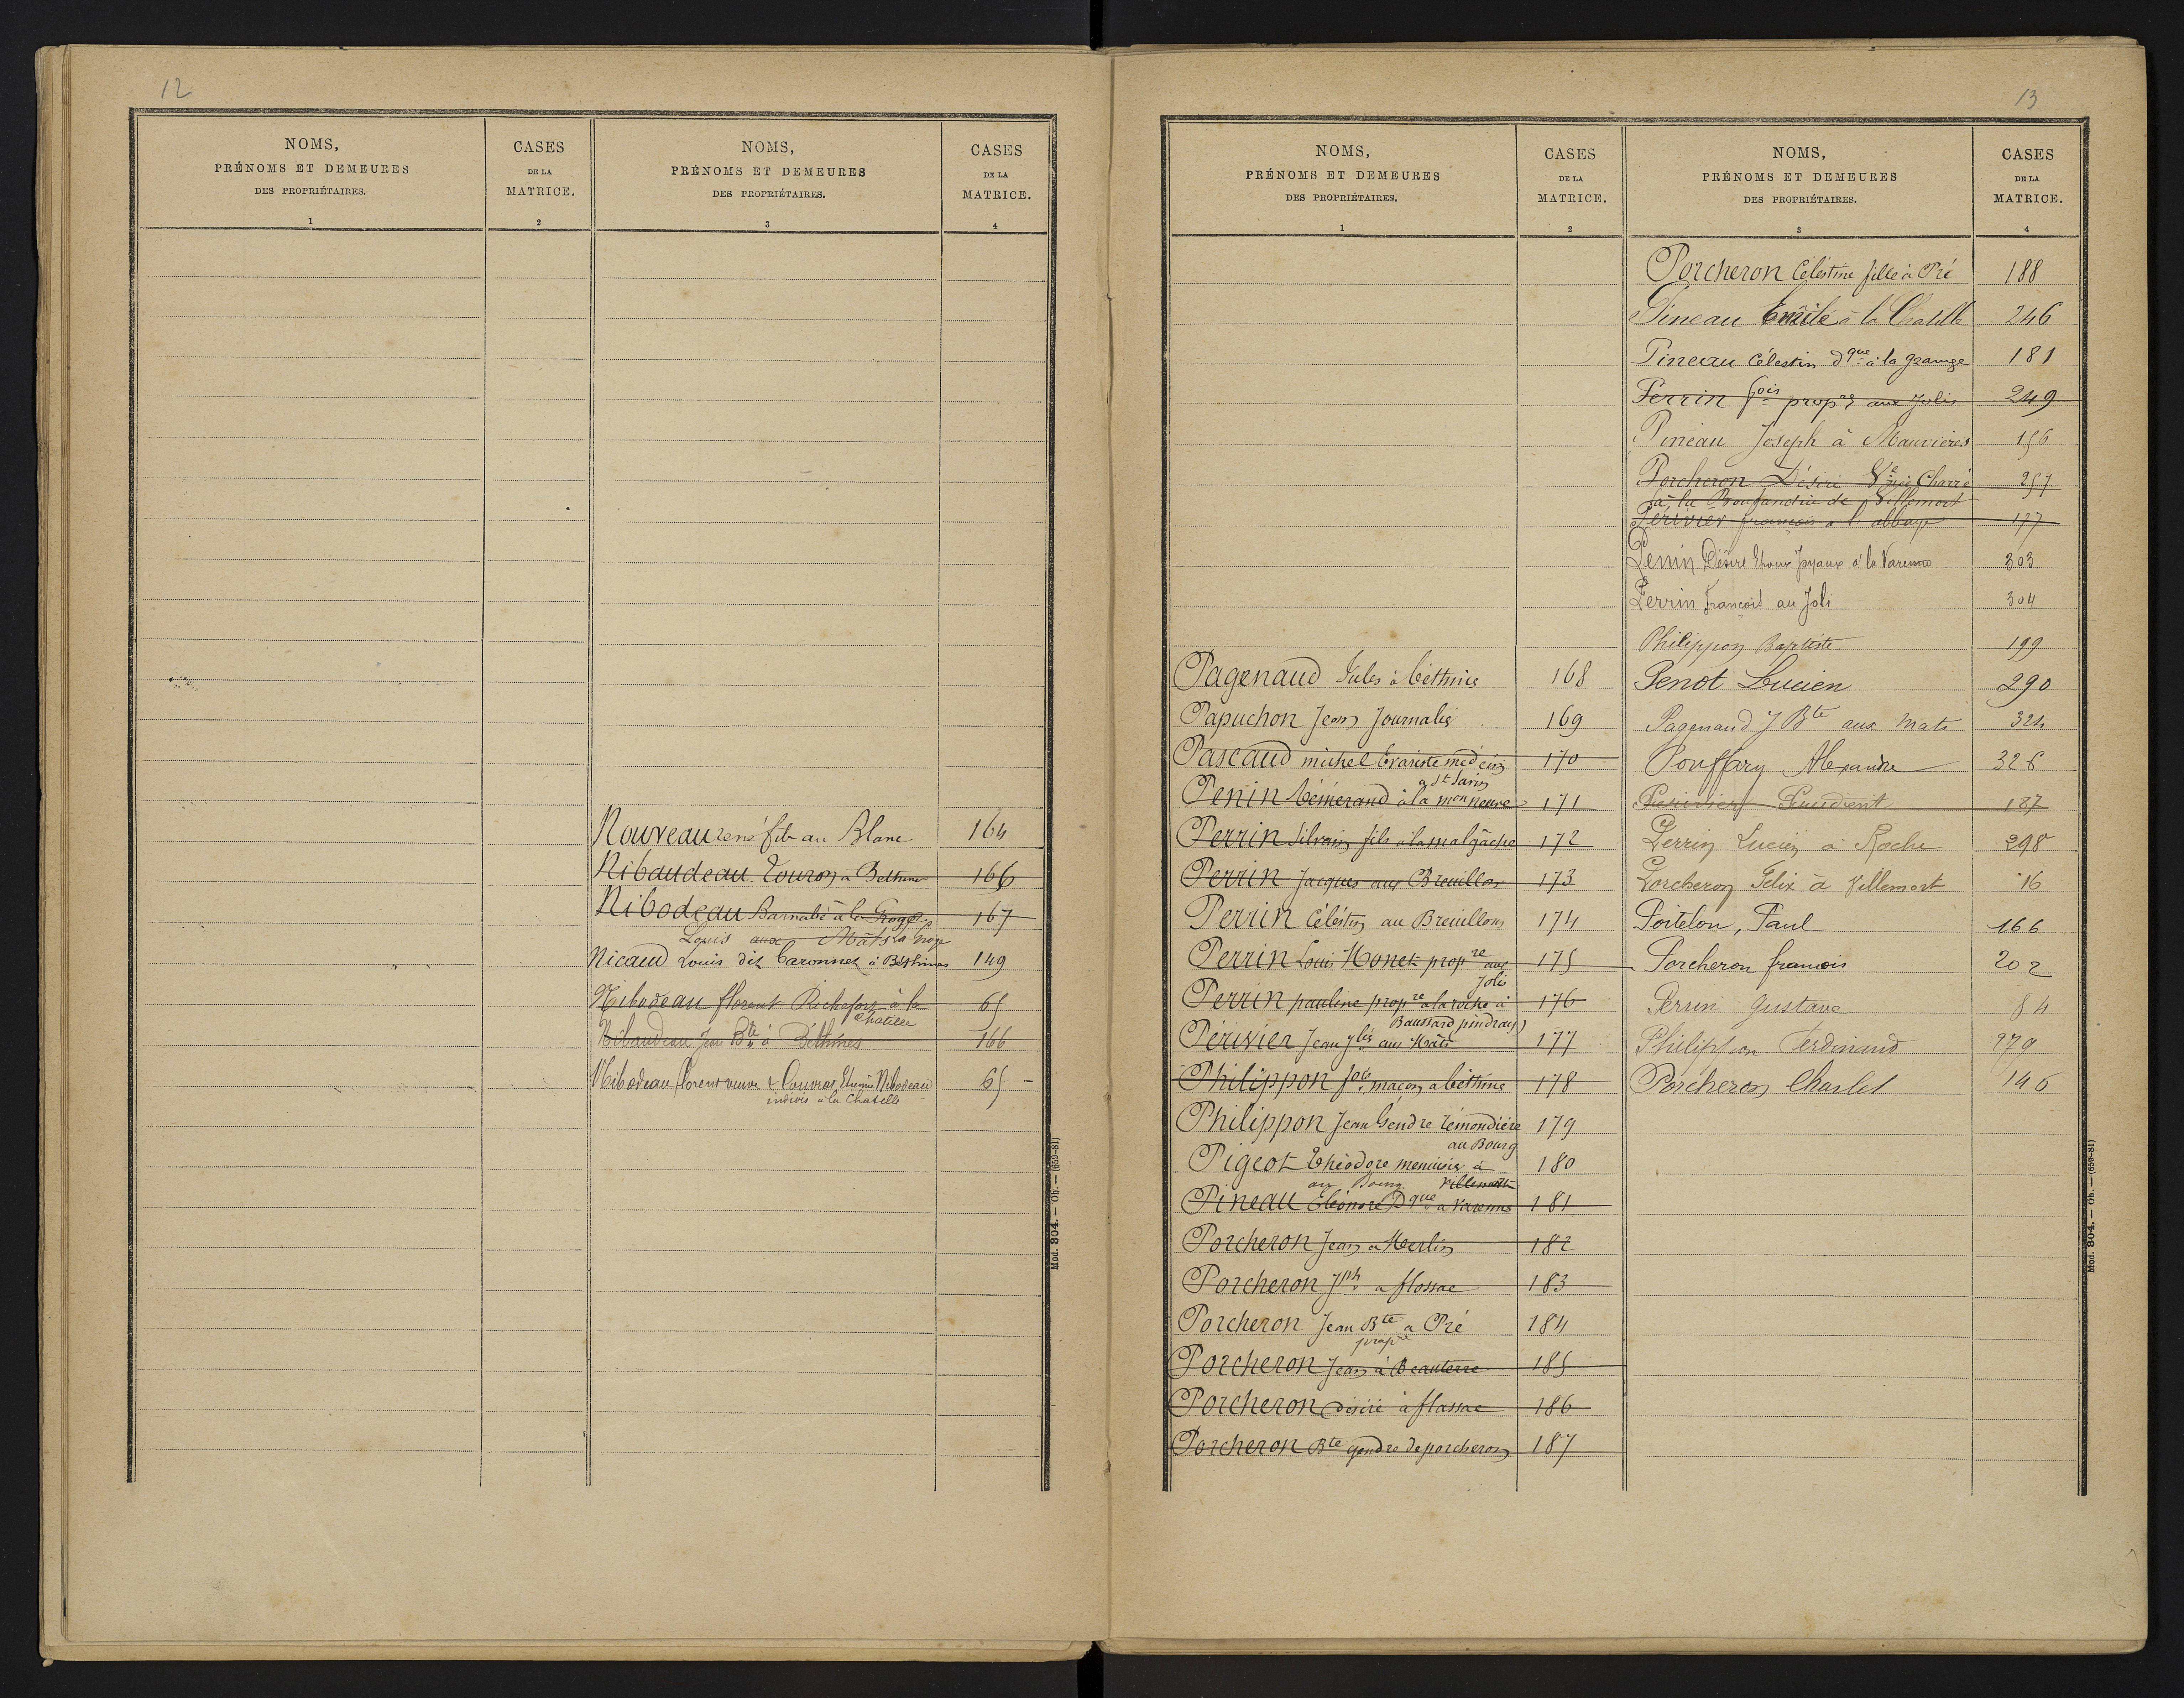 12
NOMS,
PRÉNOMS ET DEMEURES
DES PROPRIÉTAIRES.
1
CASES
DE LA
MATRICE.
2
NOMS,
PRÉNOMS ET DEMEURES
DES PROPRIÉTAIRES.
3
CASES
DE LA
MATRICE.
4
Nouveau rené fils au Blanc 164
Nibaudeau Touron à Bethines 166
Nibodeau Barnabé à la Groge 167
Louis aux Mâts la Groge
Nicaud Louis dit Caronnet à Béthines 149
Nibodeau florent Rochefort à la 65
Chatille
Nibaudeau Jean Bte à Béthines 166
Nibodeau florent veuve & Couvrat Etienne Nibodeau 65
indivis à la Chatelle
Mod. 304. — Ob. — (659-81)
13
NOMS,
PRÉNOMS ET DEMEURES
DES PROPRIÉTAIRES.
1
CASES
DE LA
MATRICE.
2
Pagenaud Jules à béthines 168
Papuchon Jean Journalier 169
Pascaud michel Evariste médecin 170
a St Savin
Penin à la 171
Perrin Silvain fils à la malgâche 172
Perrin Jacques aux Breuillon 173
Perrin Céléstin au Breuillons 174
Perrin Louis Monet propre aux 175
Jolis
Perrin pauline propre a la roche à 176
Baussard pindray
Périvier Jean aux Mâts 177
Philippon fois maçon a béthines 178
Philippon Jean Gendre rémondière 179
au Bourg
Pigeot théodore menuisier à 180
au Bourg Villemort
Pineau Eléonore Dque a Varenne 181
Porcheron Jean a Merlin 182
Porcheron Jph a flossac 183
Porcheron Jean Bte a Pré 184
propre
Porcheron Jean à Beauterre 185
Porcheron désiré à flassac 186
Porcheron Bte gendre de porcheron 187
NOMS,
PRÉNOMS ET DEMEURES
DES PROPRIÉTAIRES.
3
CASES
DE LA
MATRICE.
4
Porcheron Céléstine fille à Pré 188
Pineau Emile à la Chatille 246
Pineau Célestin dque à la grange 181
Perrin fois propre aux Jolis 249
Pineau Joseph à Mauvières 156
Porcheron Désiré Ve née Charré 257
à la de Villemort
Périvier françois a l'abbaye 177
Penin Désiré Epoux Joyaux à la Varenne 303
Perrin François au Joli 304
Philippon Baptiste 199
Penot Lucien 290
Pagenaud J Bte aux Mats 324
Pouffary Alexandre 326
Périvier 187
Perrin Lucien à Roche 298
Porcheron Félix à Villemort 16
Poitelon, Paul 166
Porcheron françois 202
Perrin Gustave 84
Philippon Ferdinand 279
Porcheron Charles 146
Mod. 304. — Ob. — (659-81)